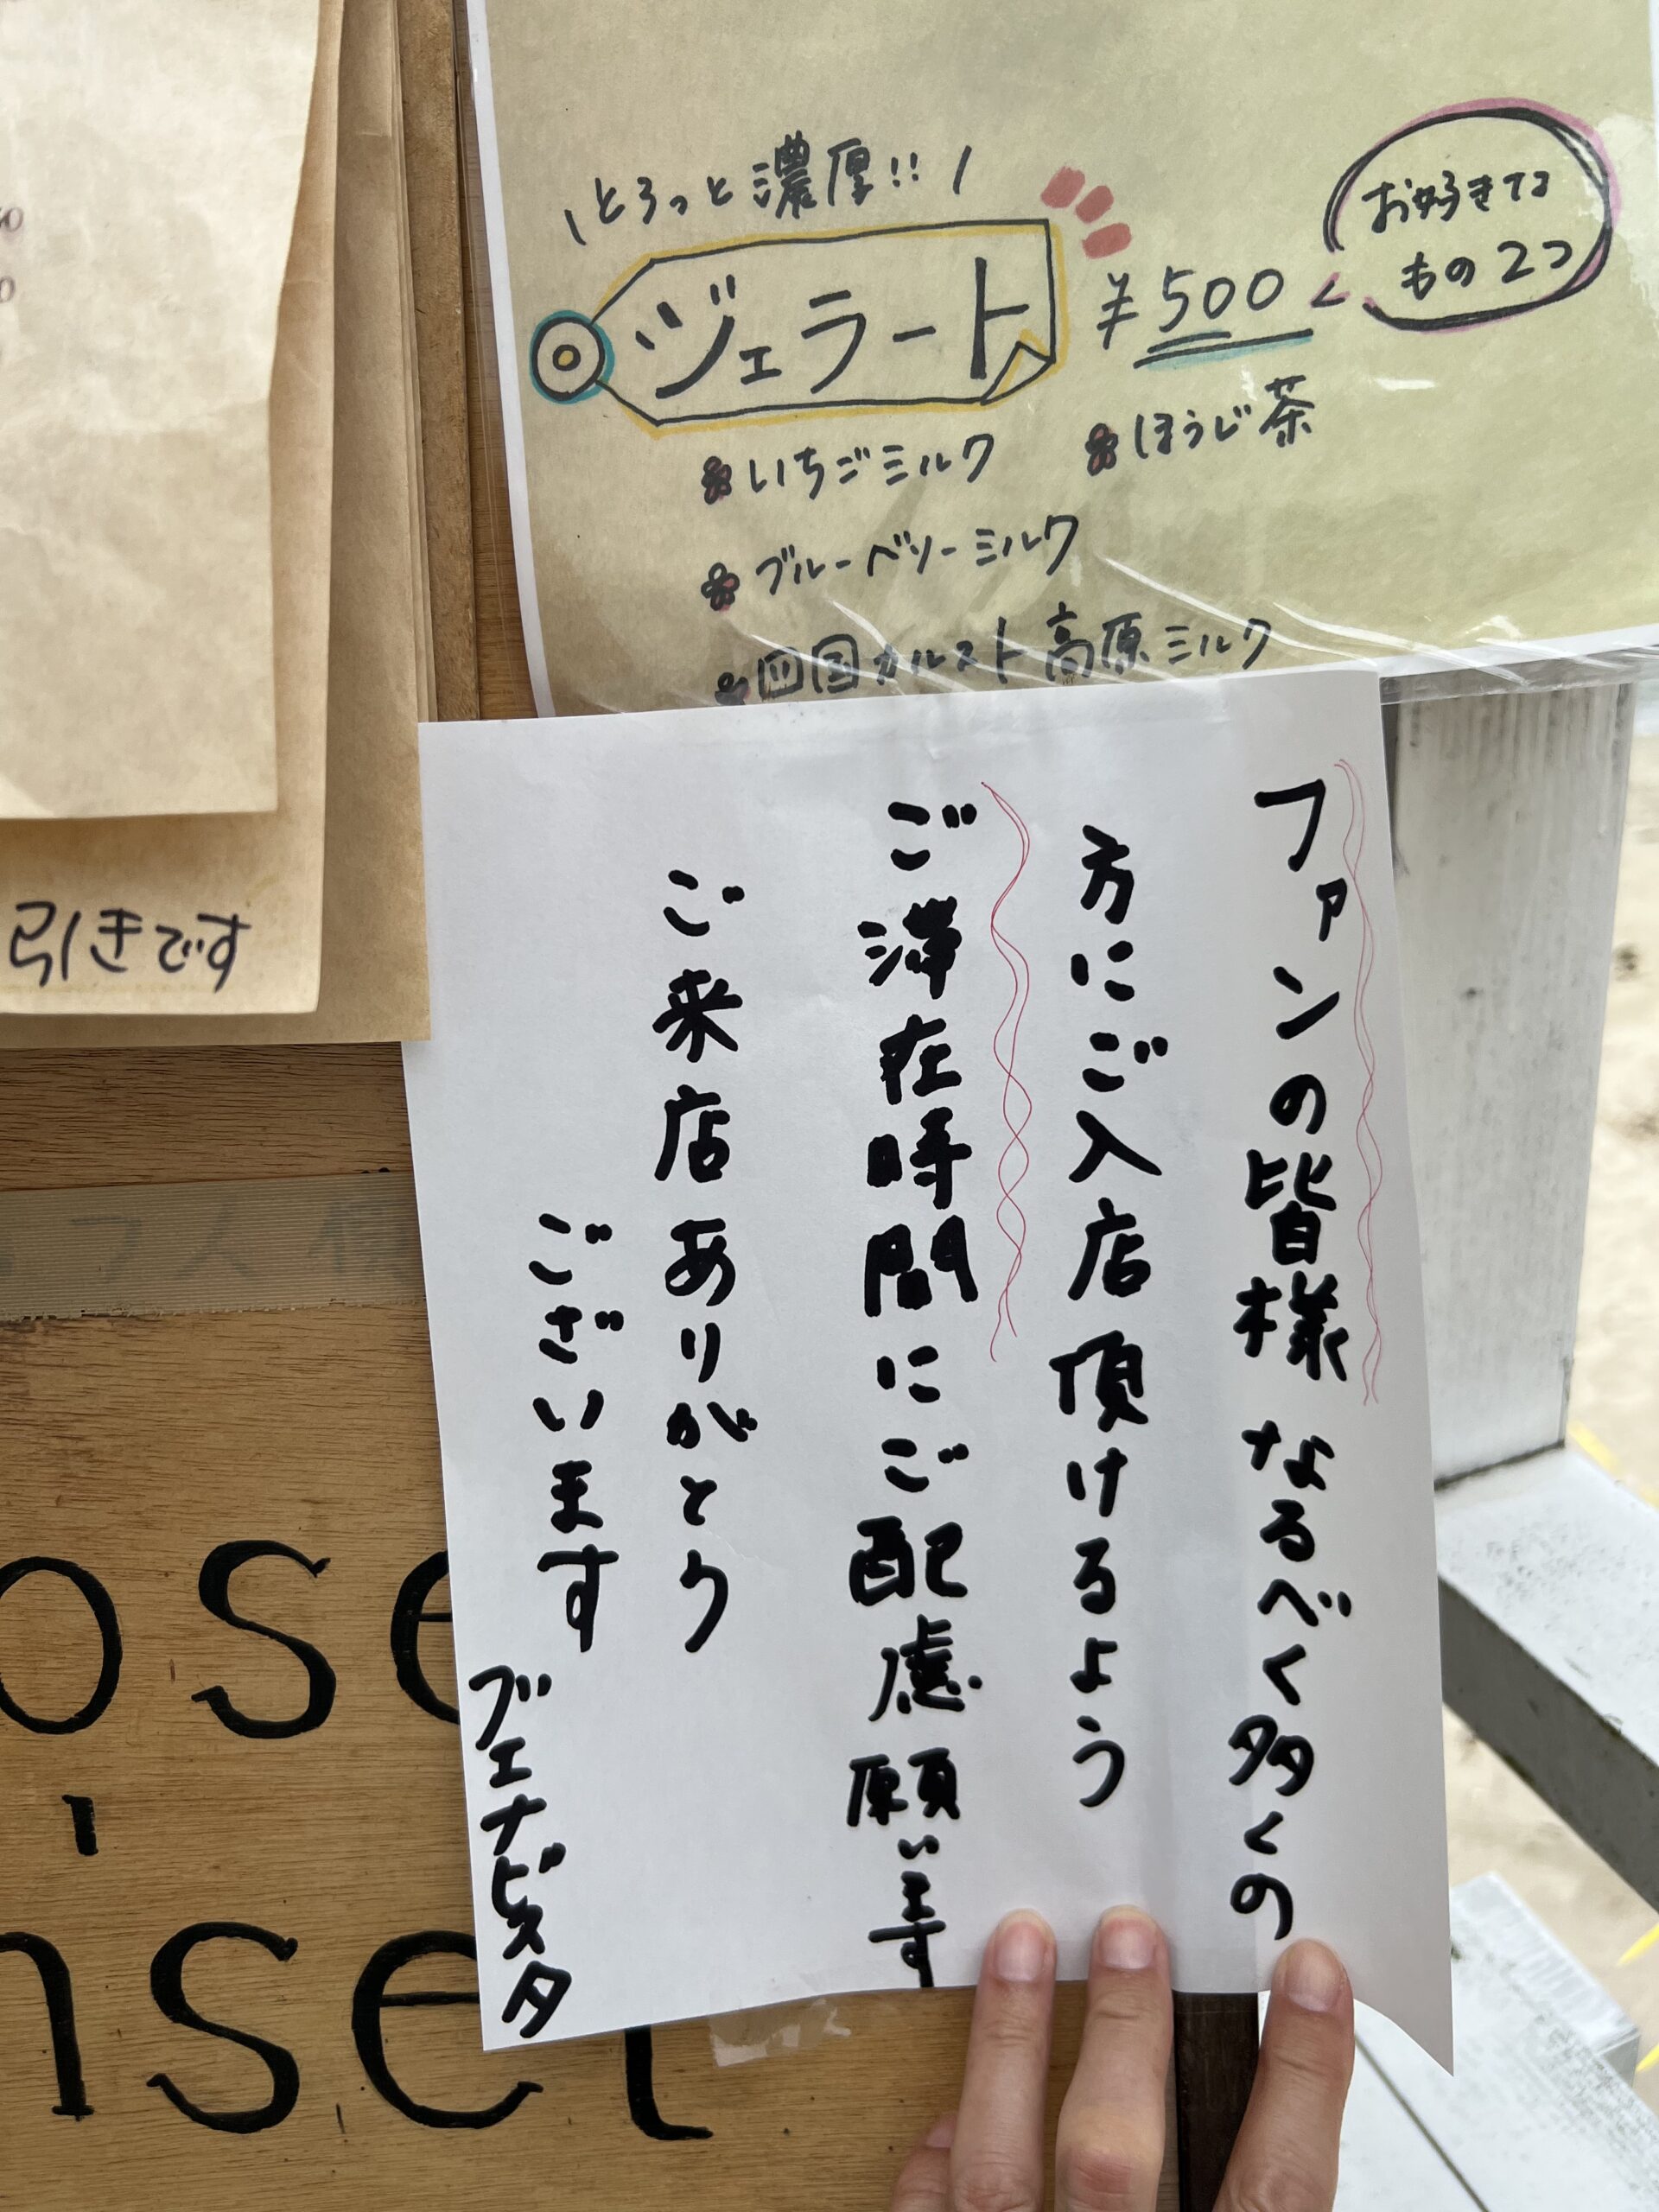 とろっと濃厚!!
ジェラート
¥500
お好きな
もの2つ
いちごミルク
ほうじ茶
ブルーベリーミルク
四国カルスト高原ミルク
引きです
ファンの皆様 なるべく多くの
方にご入店頂けるよう
ご滞在時間にご配慮願います
ご来店ありがとう
ございます
ブエナビスタ
ose
nset